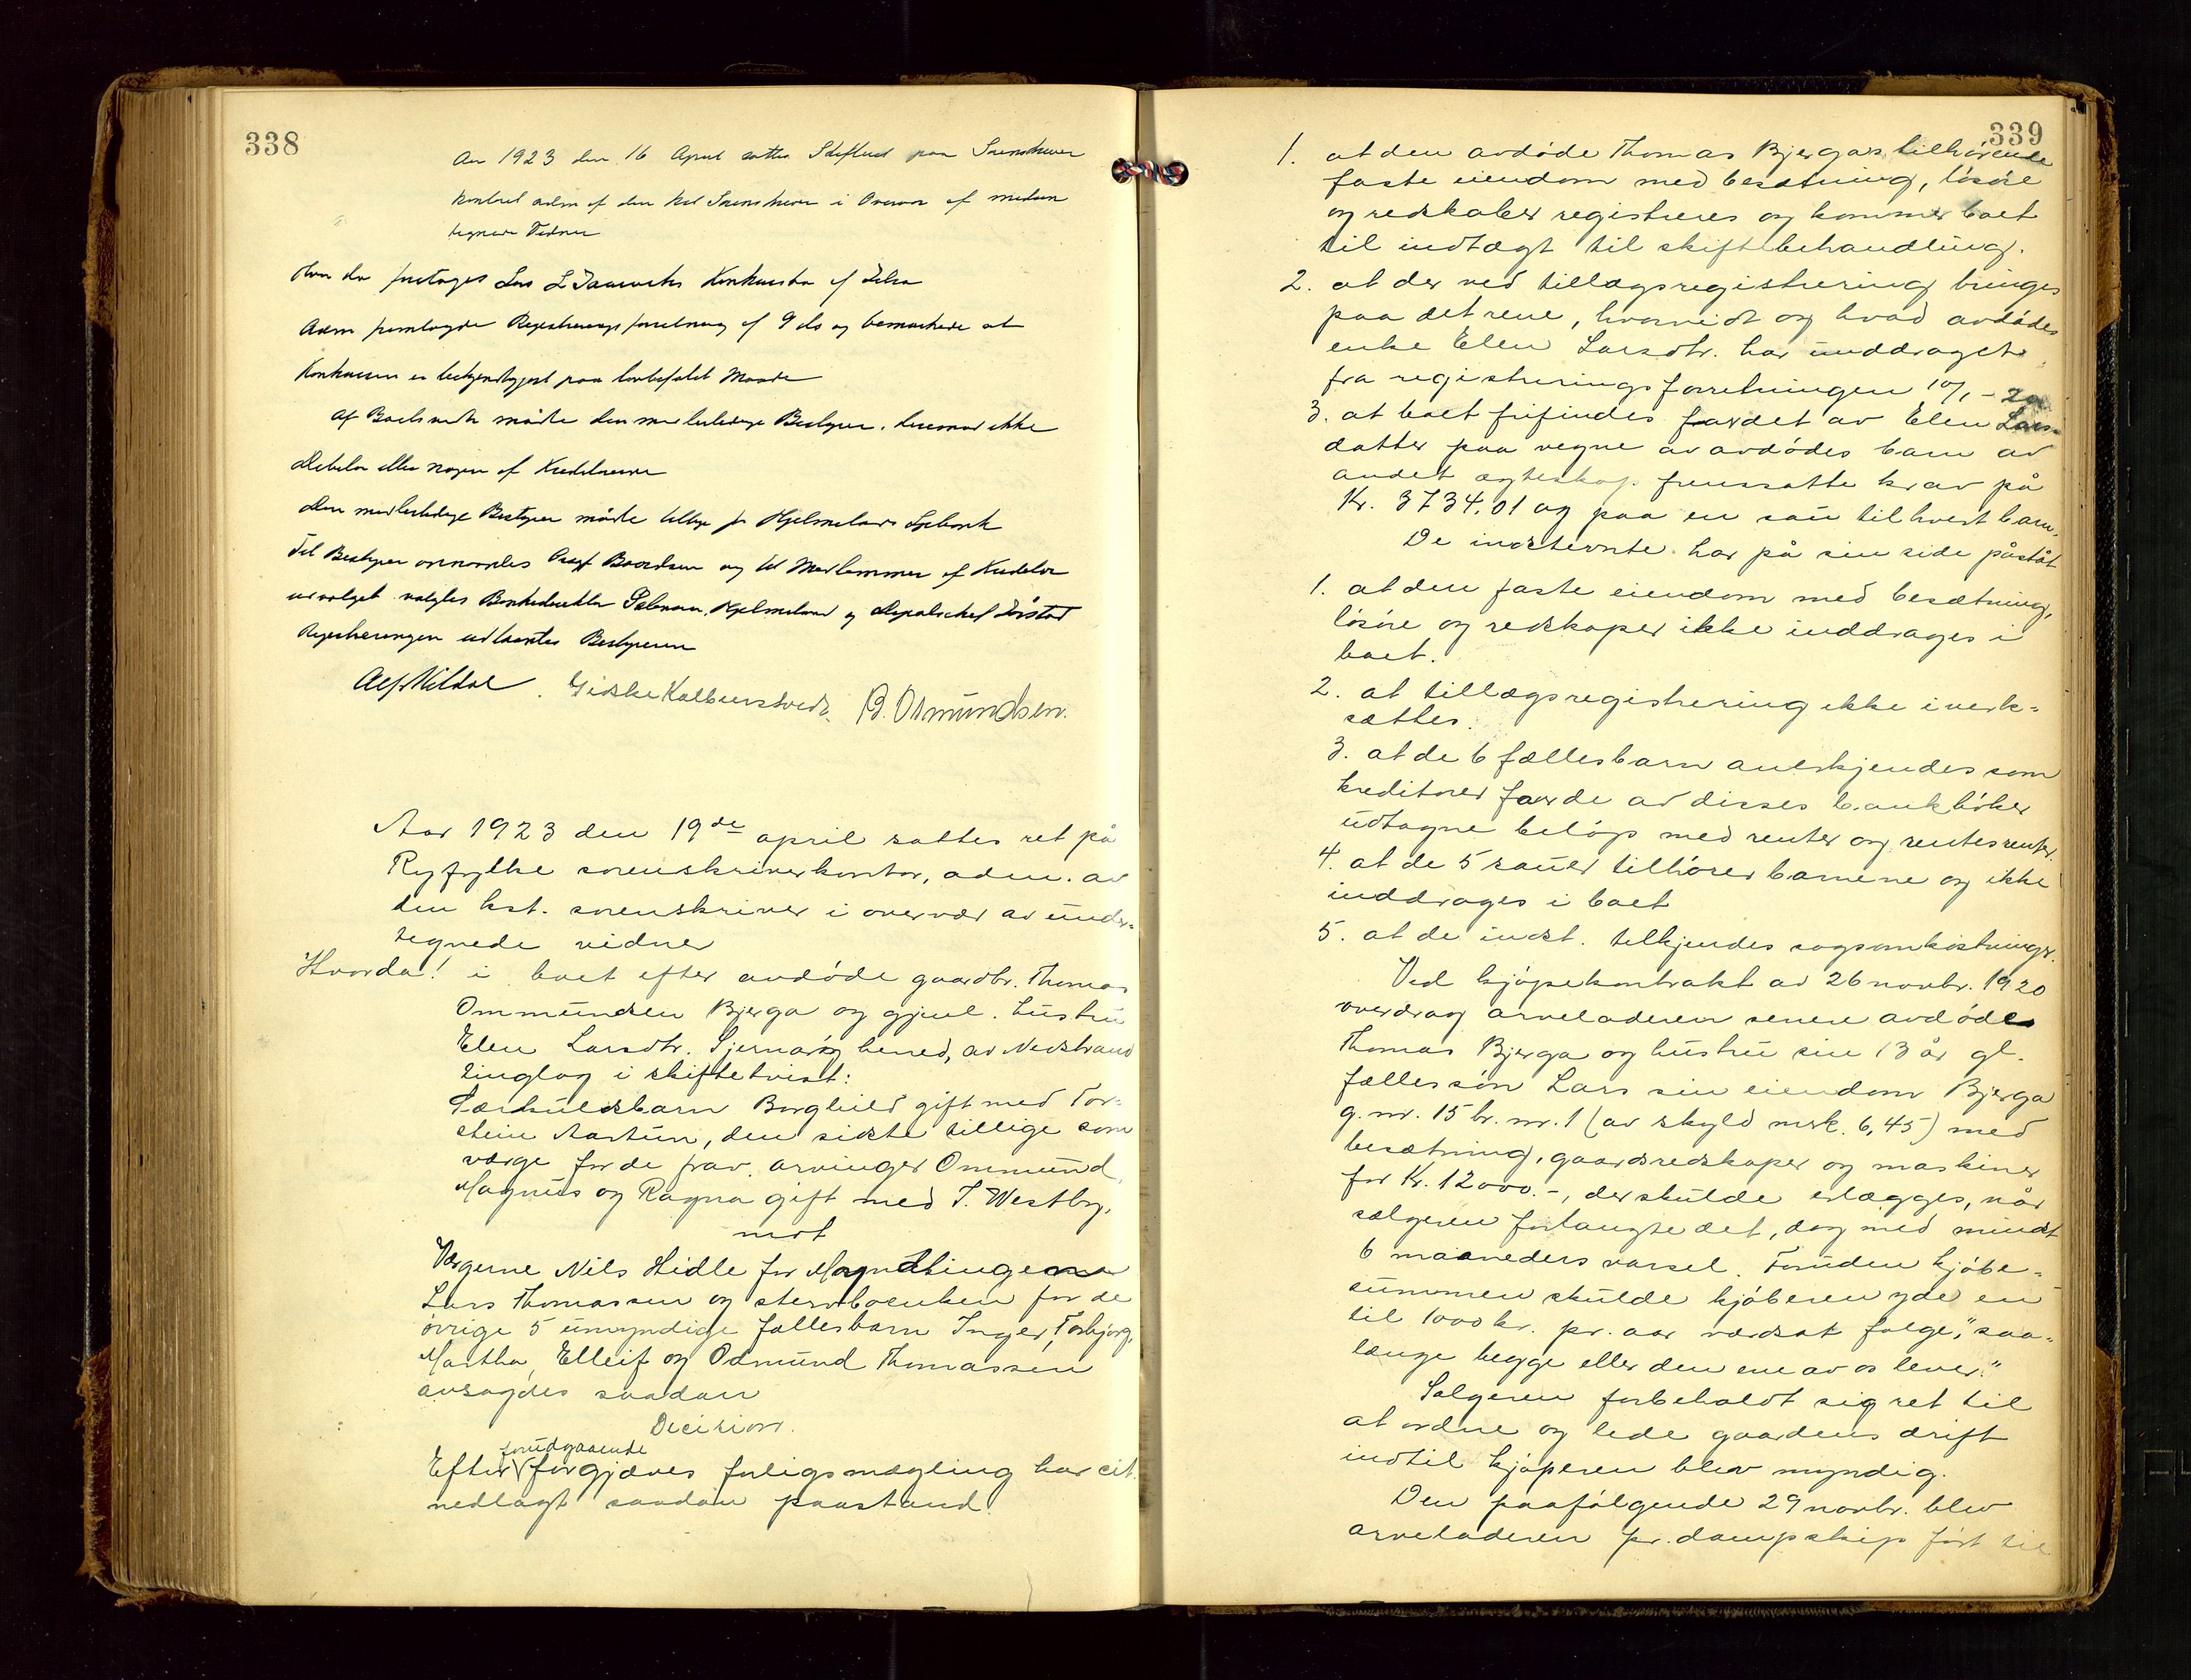 338
Aar 1923 den 16 April sattes Skifteret paa Sorenskriver
kontoret adm af den kst Sorenskriver i Overvær af under
tegnede Vidner
Hvor da foretoges Lars L Konkursbo af Jelsa
Adm fremlagde Registreringsforretning af 9 ds og bemærkede at
Konkursen er bekjendtgjort paa lovbefalet Maade
Af Boets møtte den midlertidige Bestyrer, derimod ikke
Debitor eller nogen af Kreditorerne
Den midlertidige Bestyrer møtte tillige for Hjelmelands Sparebank
Til Bestyrer opnævntes Osmundsen og til Medlemmer af Kreditor
udvalget valgtes Bankdirektør Hjelmeland og
Registreringen udlaantes Bestyreren
Alf Hildal. B. Osmundsen.
Aar 1923 den 19de april sattes ret på
Ryfylke sorenskriverkontor, adm. av
den kst. sorenskriver i overvær av under-
tegnede vidner
Hvorda! i boet efter avdøde gaardbr. Thomas
Ommundsen Bjerga og gjenl. hustru
Elen Larsdtr. Sjernarøy herred, av Nedstrand
tinglag i skiftetvist:
Særkuldsbarn Borghild gift med Tor-
stein Aartun, den sidste tillige som
værge for de frav. arvinger Ommund,
Magnus og Ragna gift med T. Westby,
mot
Værgerne Nils Hidle for Myndlingen
Lars Thomassen og stervboenken for de
øvrige 5 umyndige fællesbarn Inger, Torbjørg,
Martha, Elleif og Odmund Thomassen
avsagdes saadan
Decision.
forudgaaende
Efter forgjæves forligsmægling har cit.
nedlagt saadan paastand.
339
1. at den avdøde Thomas Bjergas tilhørende
faste eiendom med besætning, løsøre
og redskaber registreres og kommer boet
til indtægt til skiftebehandling.
2. at der ved tillægsregistrering bringes
paa det rene, hvorvidt og hvad avdødes
enke Elen Larsdtr. har unddraget
fra registreringsforretningen 10/1 - 20
3. at boet frifindes for det av Elen Lars-
datter paa vegne av avdødes barn av
andet egteskap fremsatte krav på
Kr. 3734,01 og paa en sau til hvert barn.
De indstevnte har på sin side påståt
1. at den faste eiendom med besætning,
løsøre og redskaper ikke inddrages i
boet.
2. at tillægsregistrering ikke iverk-
sættes.
3. at de 6 fællesbarn anerkjendes som
kreditorer for de av disses bankbøker
udtagne beløp med renter og rentesrenter.
4. at de 5 sauer tilhører barnene og ikke
inddrages i boet
5. at de indst. tilkjendes sagsomkostninger.
Ved kjøpekontrakt av 26 novbr. 1920
overdrog arveladeren senere avdøde
Thomas Bjerga og hustru sin 13 år gl.
fælles søn Lars sin eiendom Bjerga
g. nr. 15 br. nr. 1 (av skyld mrk. 6,45) med
besætning, gaardsredskaper og maskiner
for Kr. 12000.-, der skulde erlægges, når
sælgeren forlangte det, dog med mindst
6 maaneders varsel. Foruden kjøbe-
summen skulde kjøberen yde en
til 1000 kr. pr. aar værdsat følge, "saa-
længe begge eller den ene av os lever."
Sælgeren forbeholdt sig ret til
at ordne og lede gaardens drift
indtil kjøperen blev myndig.
Den paafølgende 29 novbr. blev
arveladeren pr. dampskip ført til